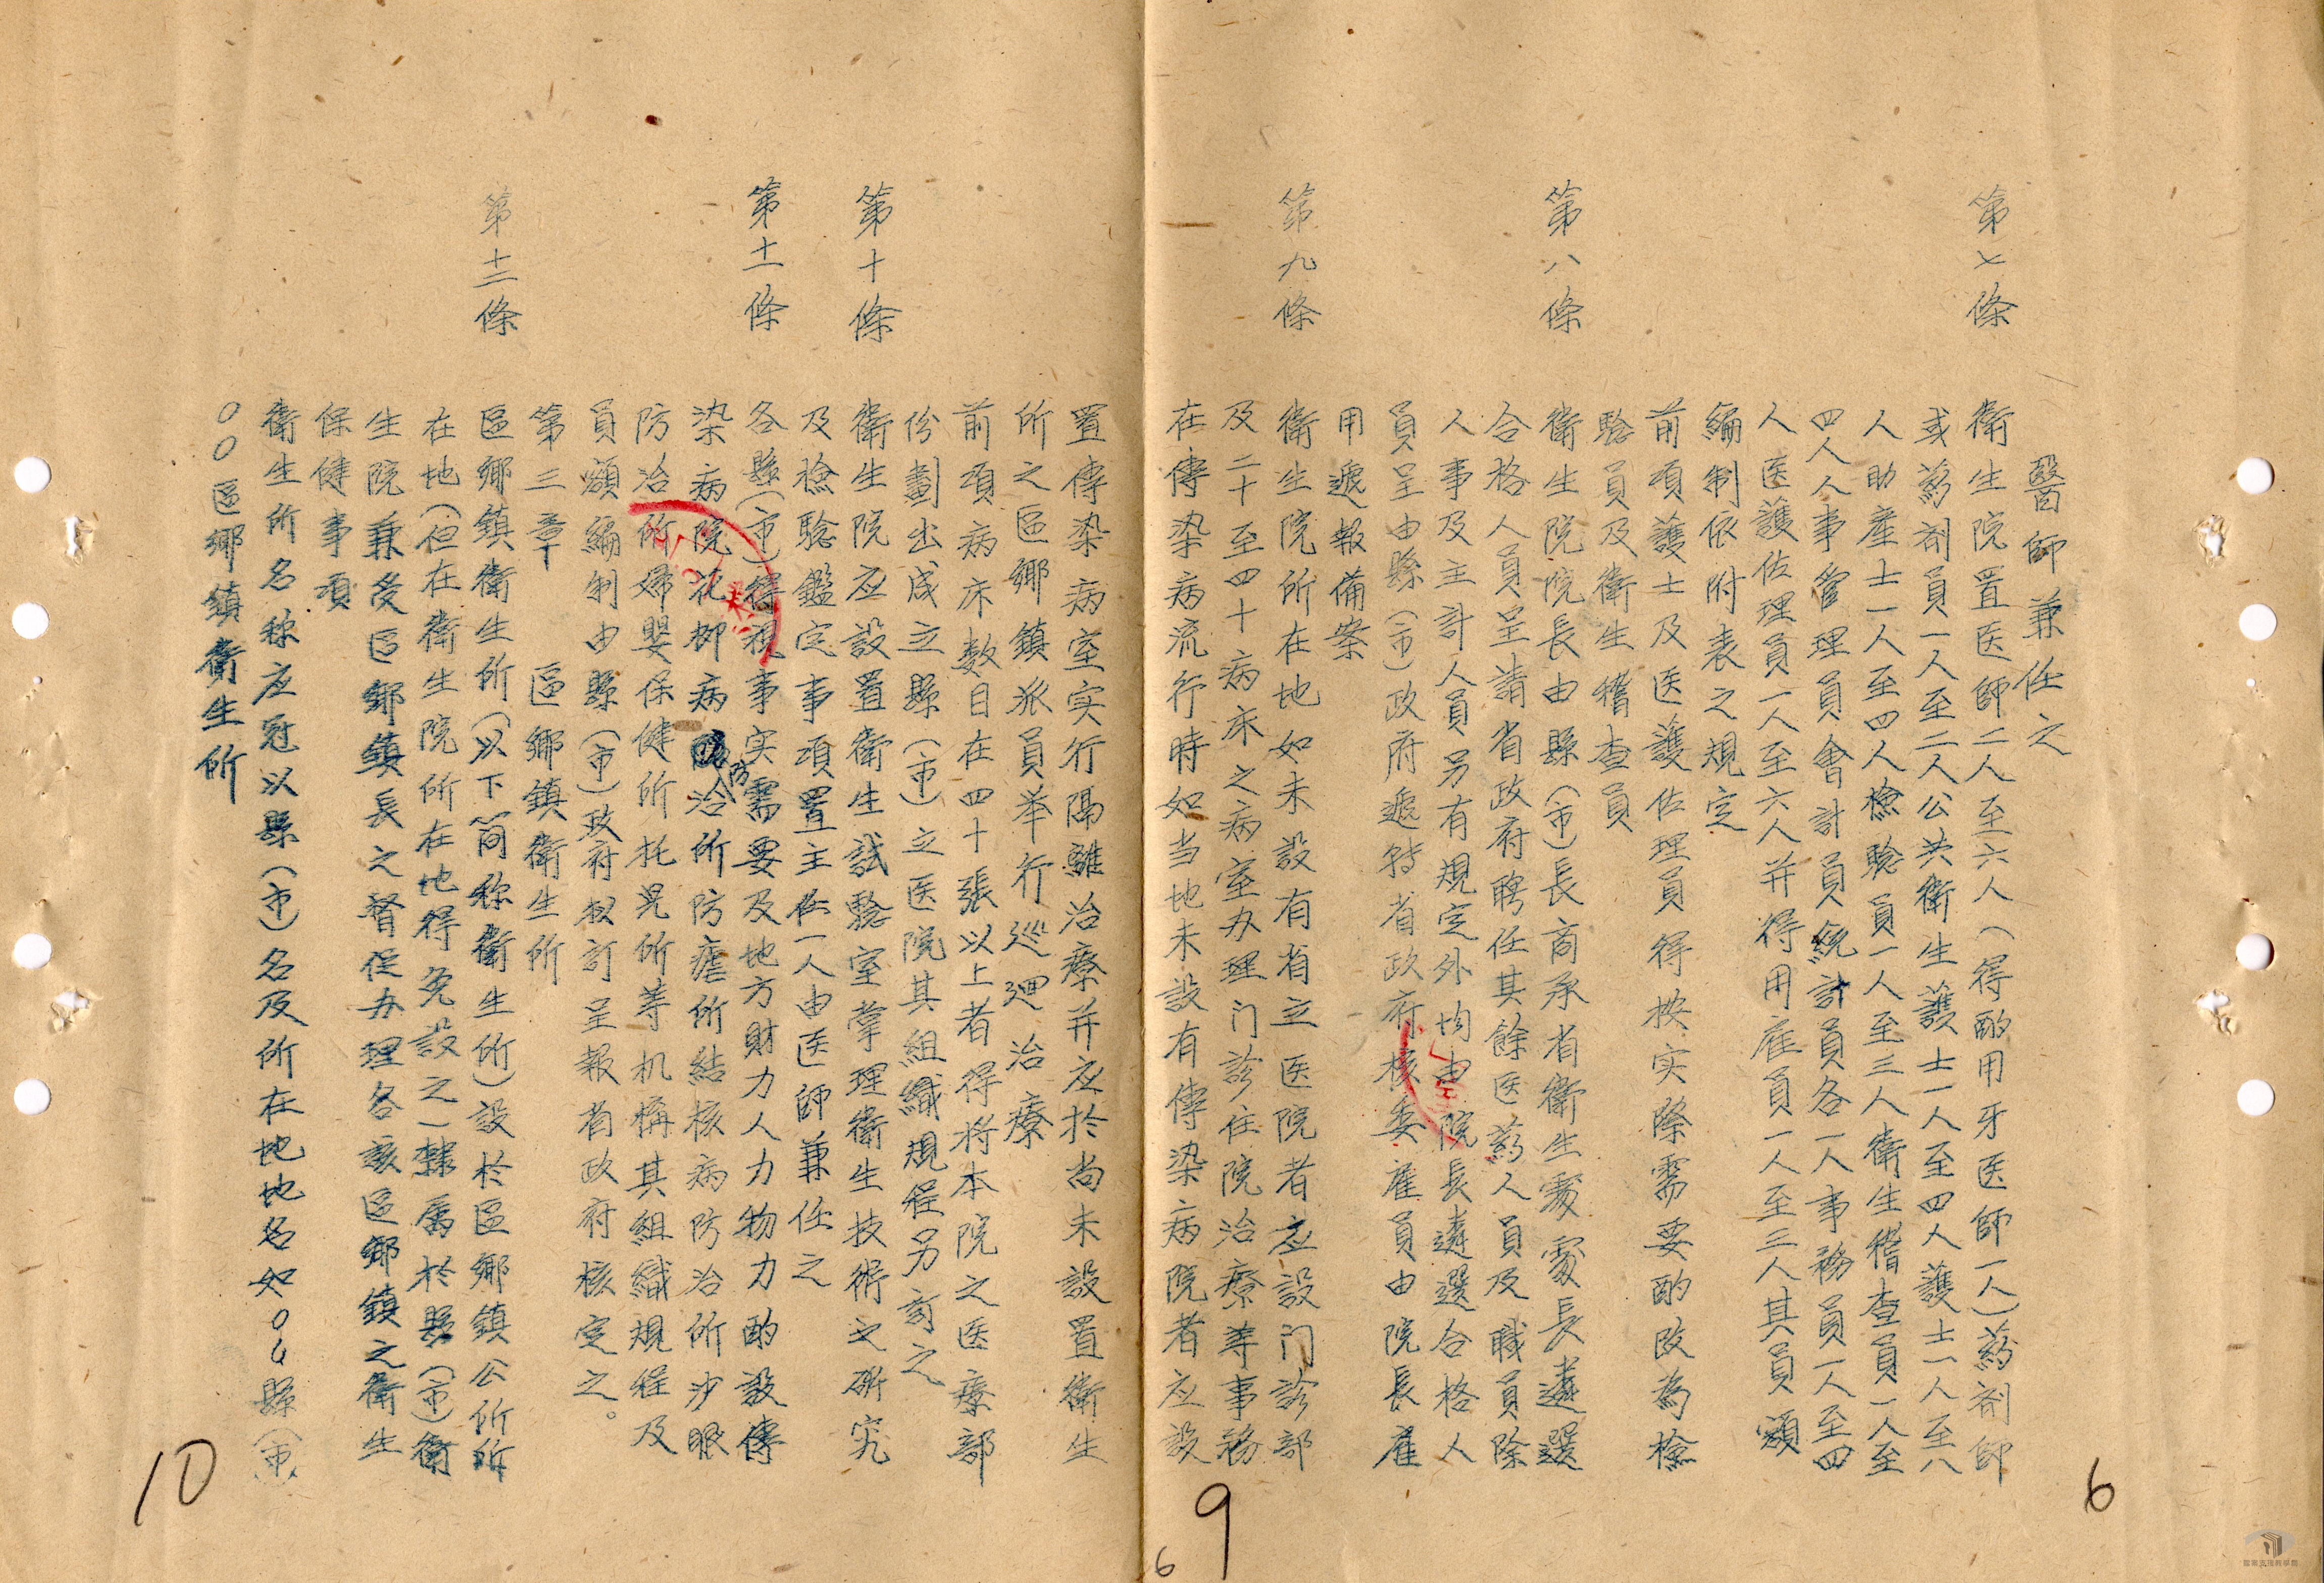 醫師兼任之
第七條 衛生院置医師二人至六人（得酌用牙医師一人）葯剂師
或葯剂員一人至二人公共衛生護士一人至四人護士一人至八
人助產士一人至四人檢驗員一人至三人衛生稽查員一人至
四人人事管理員會計員統計員各一人事務員一人至四
人医護佐理員一人至六人并得用雇員一人至三人其員額
編制依附表之規定
前項護士及医護佐理員得按实際需要酌改為檢
驗員及衛生稽查員
第八條 衛生院院長由縣（市）長商承省衛生處處長遴選
合格人員呈請省政府聘任其餘医葯人員及職員除
人事及主計人員另有規定外均由院長遴選合格人
員呈由縣（市）政府遞轉省政府核委雇員由院長雇
用遞報備案
第九條 衛生院所在地如未設有省立医院者应設门診部
及二十至四十病床之病室办理门診住院治療等事務
在傳染病流行時如当地未設有傳染病院者应設
置傳染病室实行隔離治療并应於尚未設置衛生
所之區鄉鎮派員举行巡迴治療
前項病床数目在四十張以上者得将本院之医療部
份劃出成立縣（市）之医院其組織規程另訂之
第十條 衛生院应設置衛生試驗室掌理衛生技術之研究
及檢驗鑑定事項置主任一人由医師兼任之
第十一條 各縣（市）得視事实需要及地方財力人力物力酌設傳
染病院花柳病防治所防瘧所結核病防治所沙眼
防治所婦嬰保健所托児所等机構其組織規程及
員額編制由縣（市）政府拟訂呈報省政府核定之。
第三章 區鄉鎮衛生所
第十二條 區鄉鎮衛生所（以下简称衛生所）設於區鄉鎮公所所
在地（但在衛生院所在地得免設之）隸属於縣（市）衛
生院兼受區鄉鎮長之督促办理各該區鄉鎮之衛生
保健事項
衛生所名称应冠以縣（市）名及所在地地名如00縣（市）
00區鄉鎮衛生所
6
9
6
10